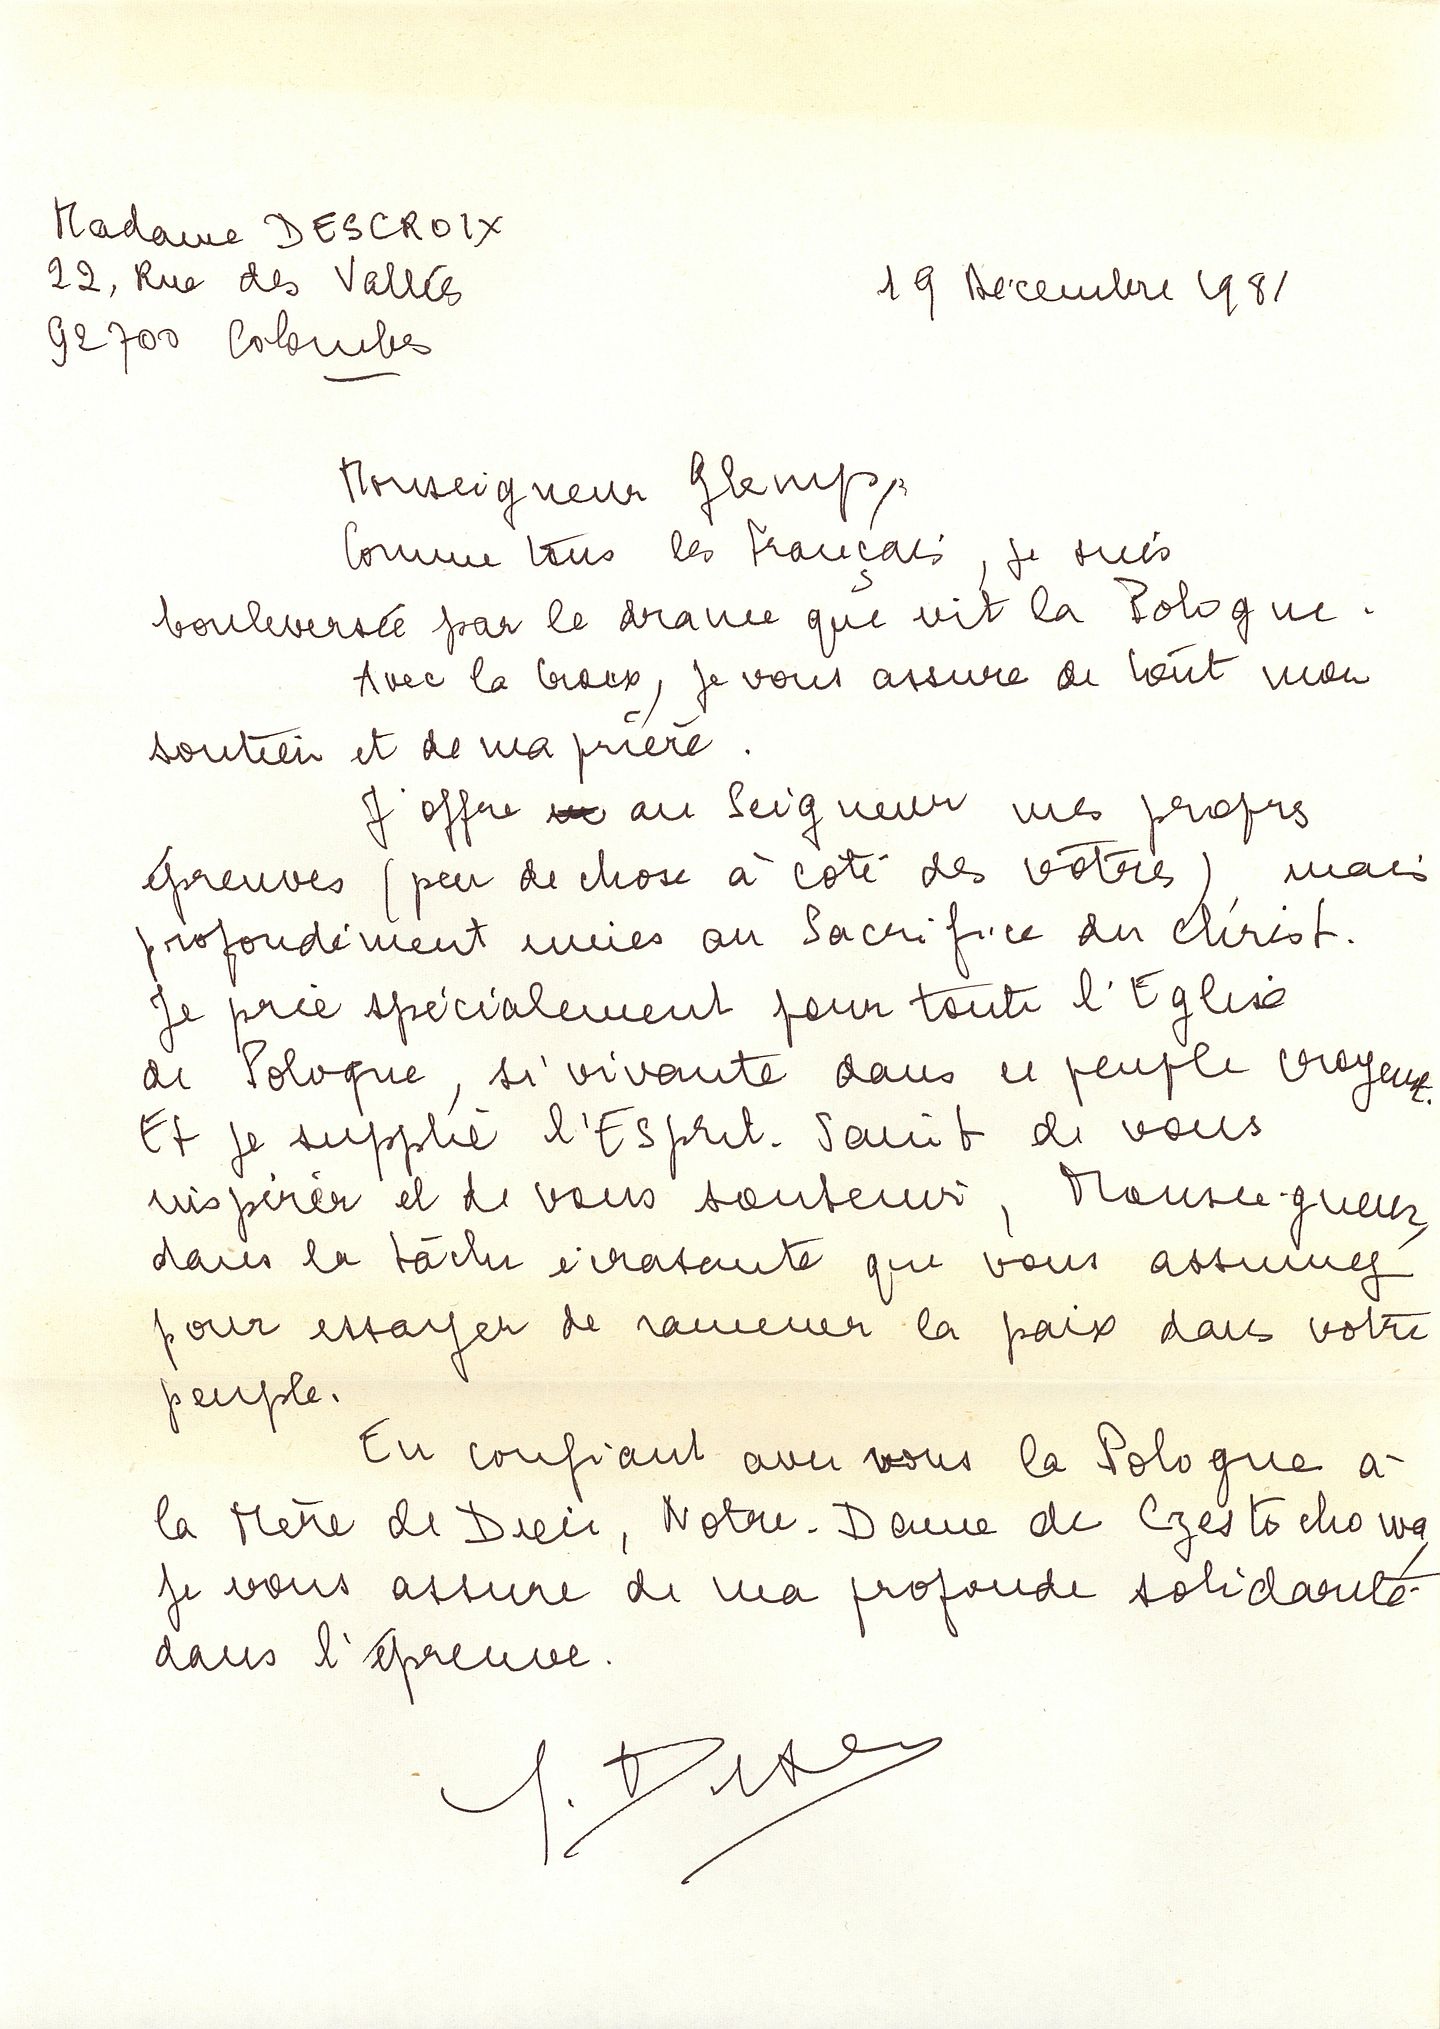 Madame DESCROIX
22, Rue des Vallées
92700 Colombes
19 Décembre 1981
Monseigneur Glemp,
Comme tous les Français, je suis
bouleversée par le drame que vit la Pologne.
Avec la Croix, je vous assure de tout mon
soutien et de ma prière.
J'offre au Seigneur mes propres
épreuves (peu de chose à côté des vôtres), mais
profondément unies au Sacrifice du Christ.
Je prie spécialement pour toute l'Eglise
de Pologne, si vivante dans ce peuple croyant.
Et je supplie l'Esprit-Saint de vous
inspirer et de vous soutenir, Monseigneur,
dans la tâche écrasante que vous assumez
pour essayer de ramener la paix dans votre
peuple.
En confiant avec vous la Pologne à
la Mère de Dieu, Notre-Dame de Czestochowa,
je vous assure de ma profonde solidarité
dans l'épreuve.